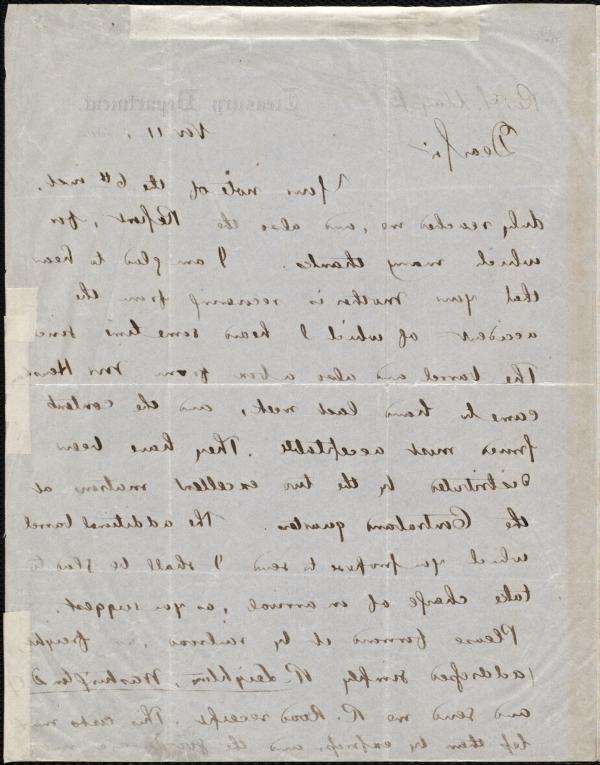 Treasury Department
Nov 11,
Dear Sir
Your note of the 6th inst.
duly reached me, and also the Report, for
which many thanks. I am glad to hear
that your mother is recovering from the
accident of which I heard some time since
The barrel and also a box from Mrs
came to hand last week, and the contents
found most acceptable. They have been
distributed by the two excellent matrons at
the Contraband quarters. The additional barrel
which you propose to send I shall be glad to
take charge of on arrival, as you suggest.
Please forward it by railroad freight
(addressed simply N. Leighton, Washington D
and send me R. Road receipt. This costs
less than by express, and the